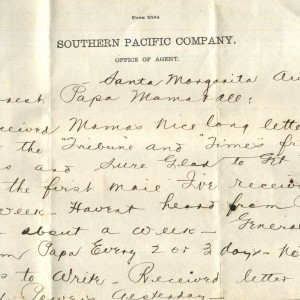 FORM 2584
SOUTHERN PACIFIC COMPANY.
OFFICE OF AGENT.
Santa Margarita Au
rest Papa Mama & all:
ceived Mama's nice long lette
the "Tribune" and "Times" fr
s and Sure Glad to Get
the first mail I've receive
week - Havent heard from
about a week - General
m Papa Every 2 or 3 days - No
s to Write - Received letter
yesterday -